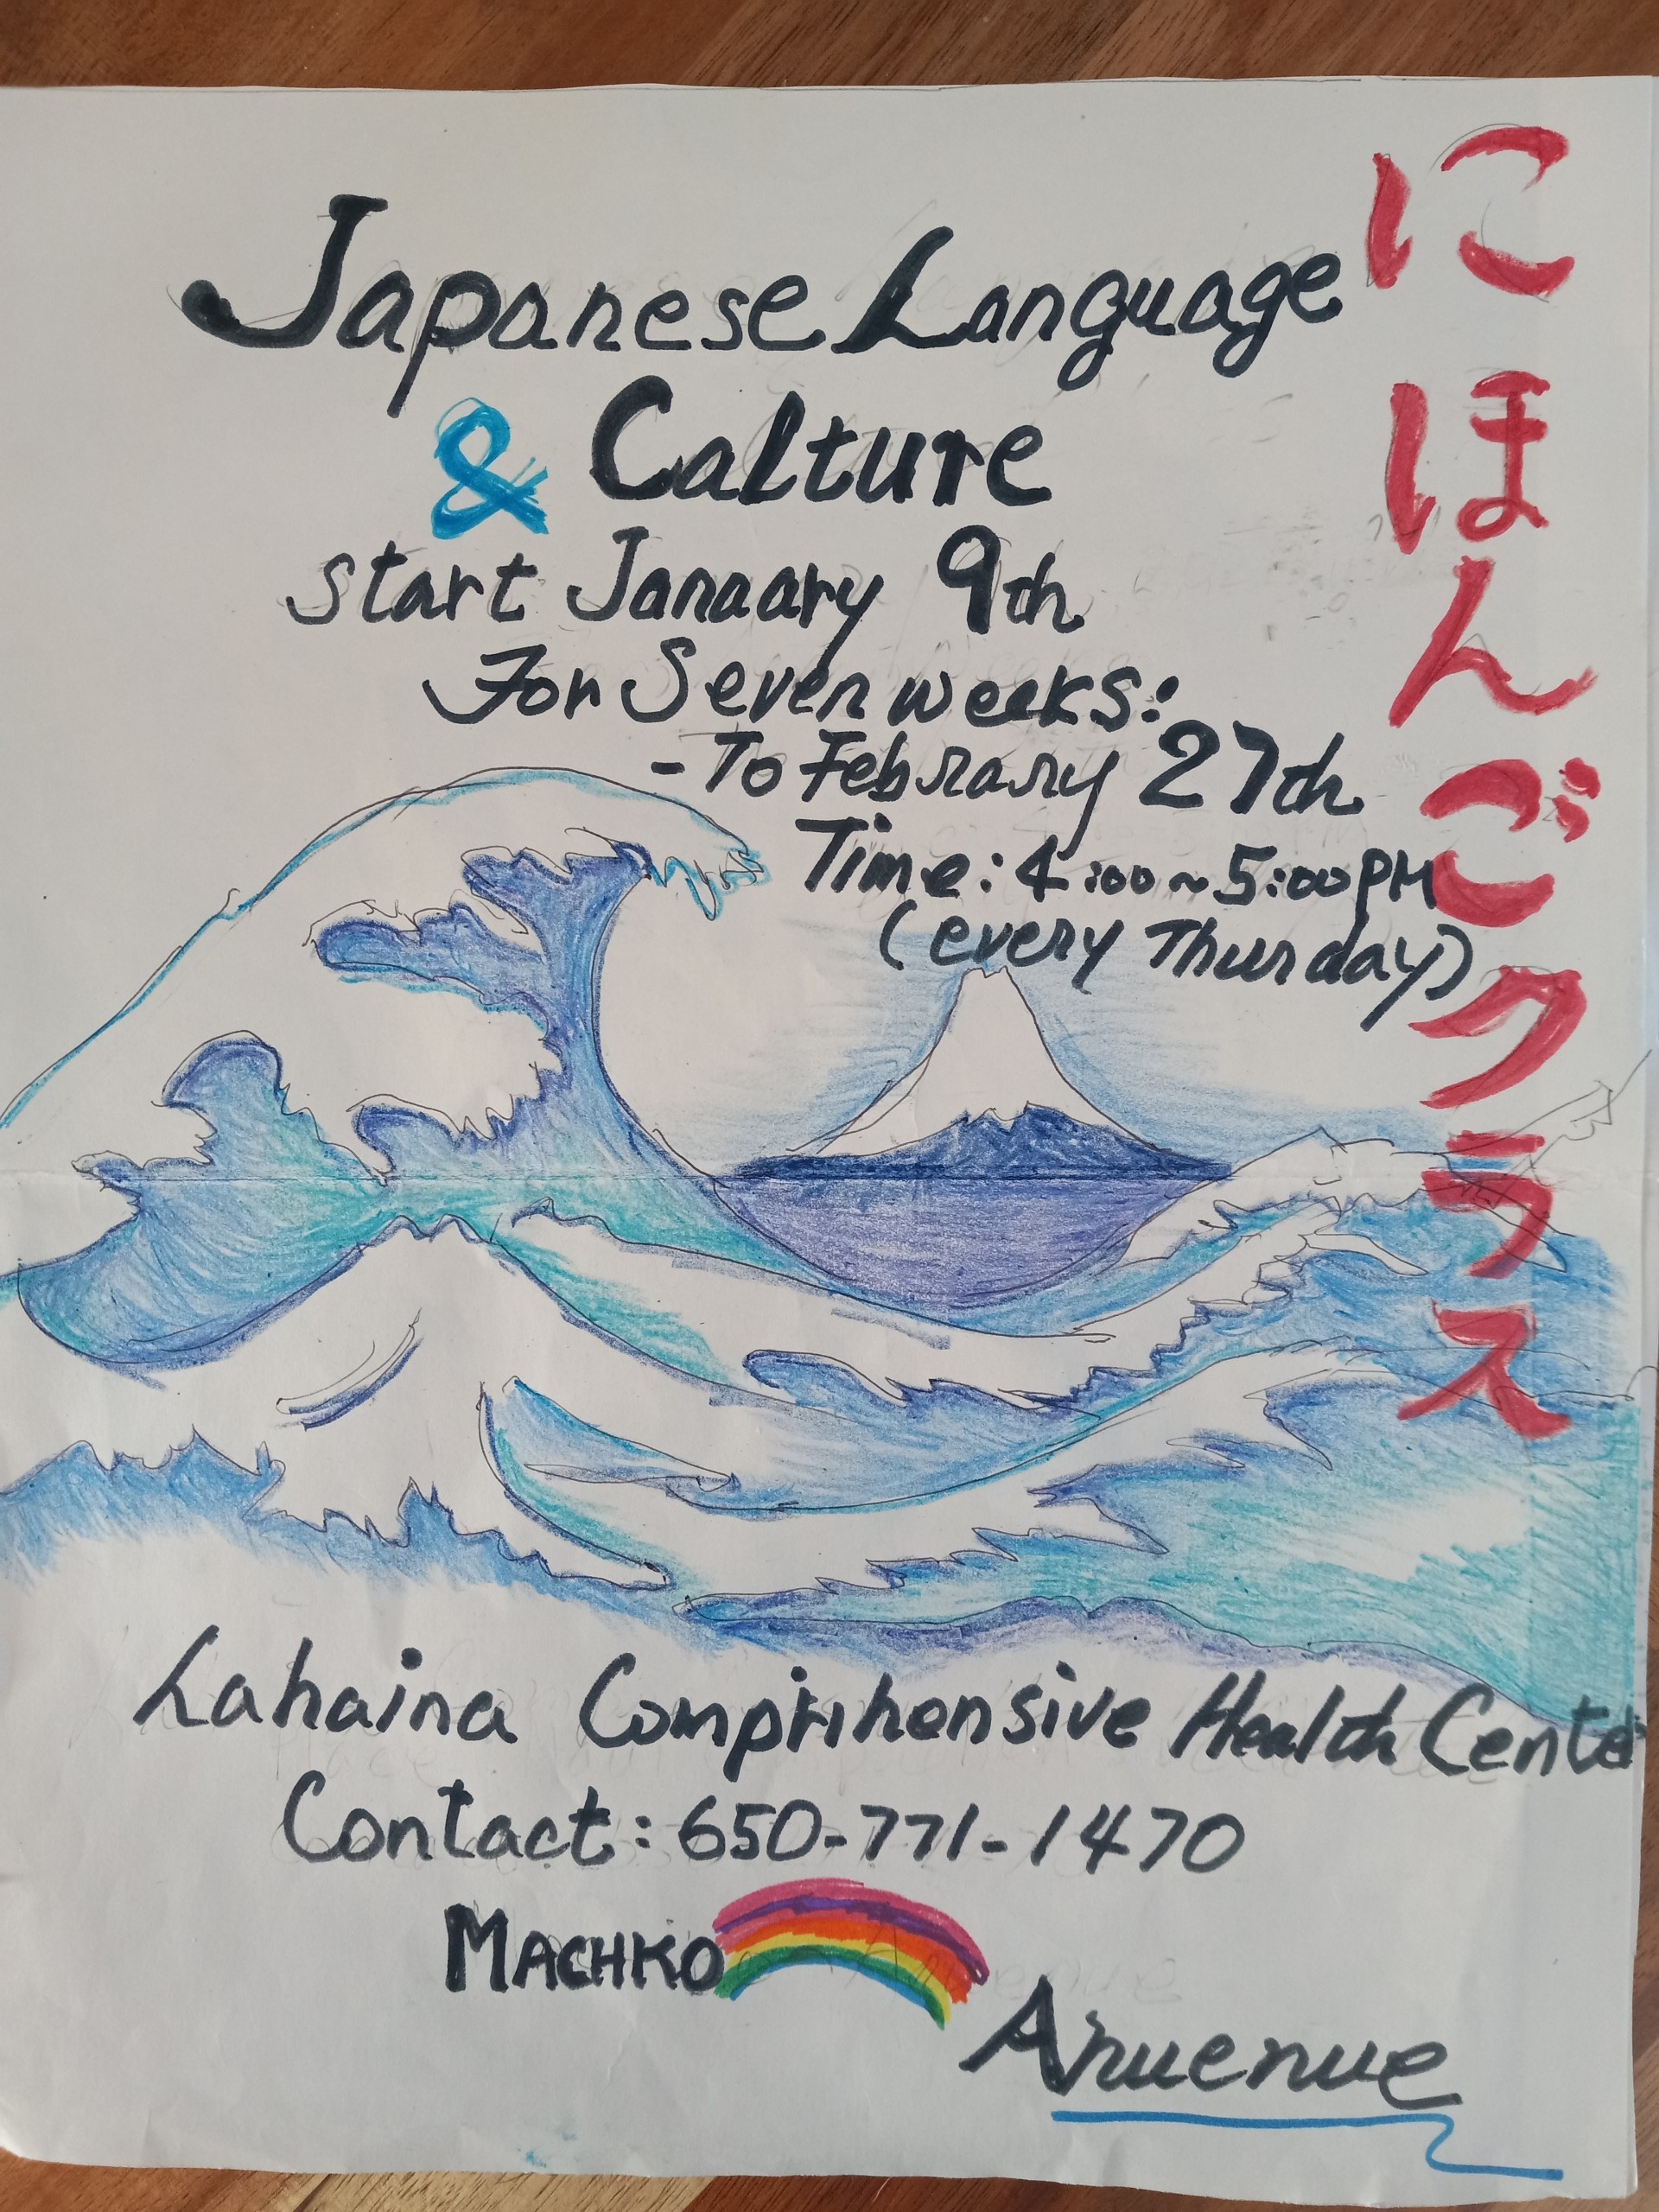 Japanese Language
& Calture
start Janaary 9th
For Seven weeks:
- To Febrary 27th
Time: 4:00~5:00PM
(every Thursday)
にほんごクラス
Lahaina Comprihensive Health Center
Contact: 650-771-1470
MACHKO
Anuenue